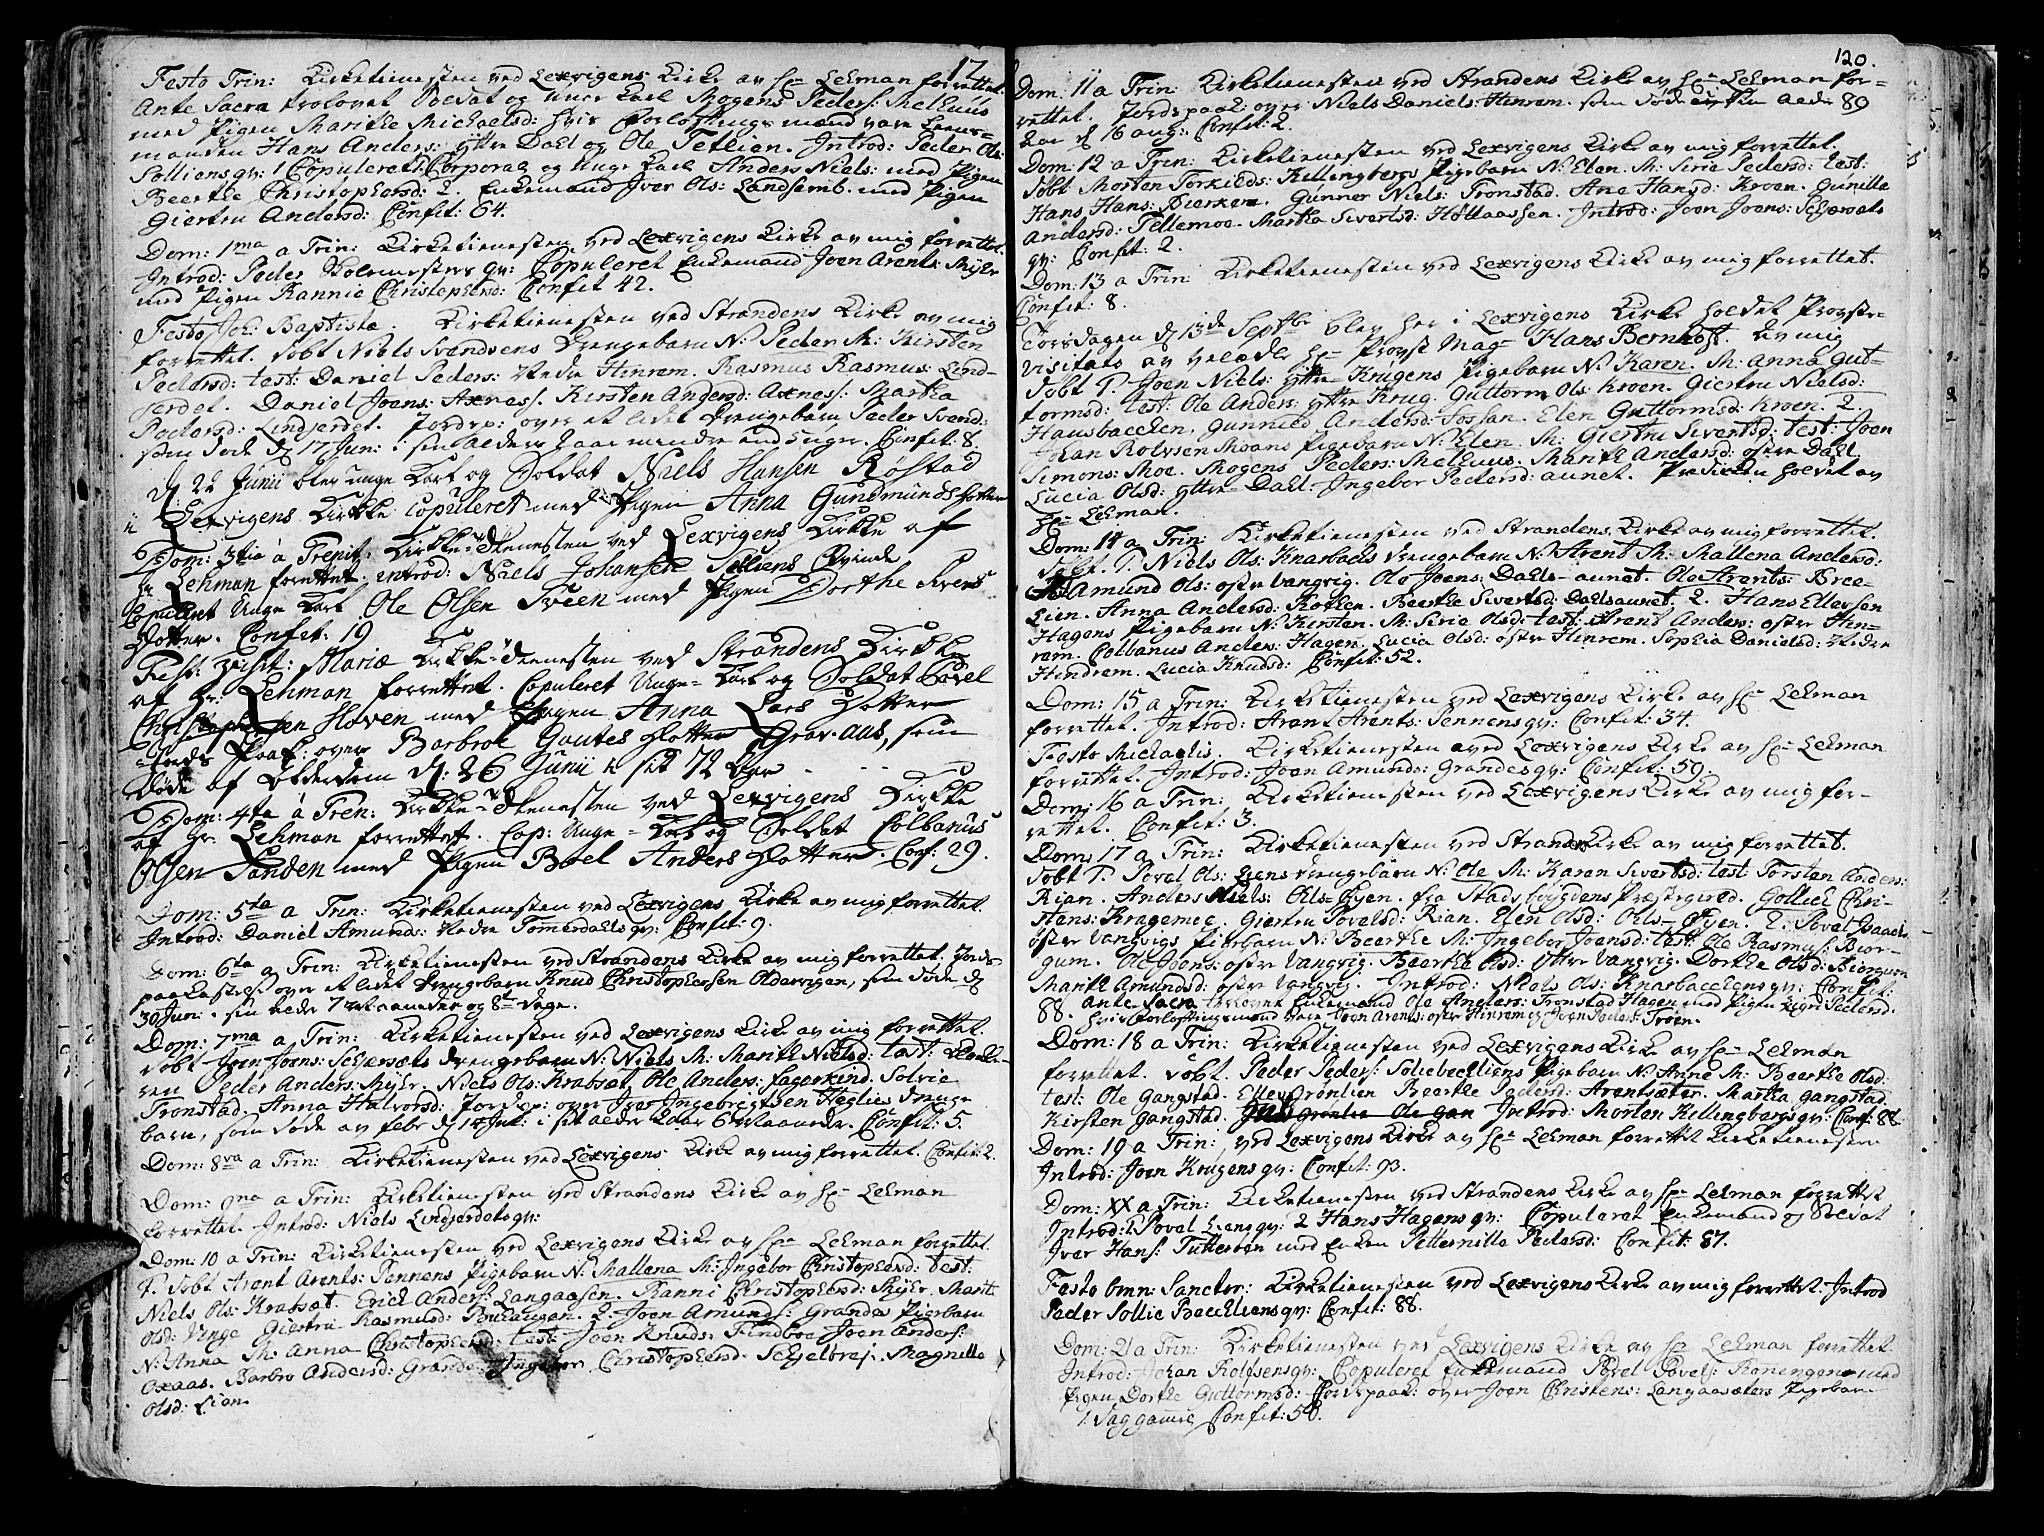 17
Festo Trin: Kirketienesten ved Lexvigens Kirke av Hr Lehman forrettet.
Ante Sacra trolovet Soldat og Unge Karl Mogens Peders: Melhuus
med Pigen Marithe Michaelsd: hvis Forloftnings mænd vare Lens-
manden Hans Anders: yttre Dahl og Ole Tetlien. Introd: Peder Ols:
Solliens qv: 1 Copuleret: Corporal og Unge Karl Anders Niels: med Pigen
Beerthe Christophersd: 2. Enkemand Iver Ols: Landsemb. med Pigen
Giertru Andersd: Confit: 64.
Dom: 1ma a Trin: Kirketienesten ved Lexvigens Kirke av mig forrettet.
Introd: Peder qv: Copuleret Enkemand Joen Arents: Myhr
med Pigen Rannie Christophersd: Confit 42.
Festo Joh: Baptistæ. Kirketienesten ved Strandens Kirke av mig
forrettet. Døbt Niels Svendsens Drengebarn N: Peder M: Kirsten
Pedersd: test: Daniel Peders: Nedre Hinrem. Rasmus Rasmus: Lind-
jerdet. Daniel Joens: Axnes. Kirsten Andersd: Axnes: Martha
Pedersd: Lindjerdet. Jordsp: over et lidet Drengebarn Peder Svends:
som døde d 17 Jun: Confit: 8.
d 22 Junii blev unge Karl og Soldat Niels Hansen Røstad
i Lexvigens Kirkke copuleret med Pigen Anna Gundmunds Dotter
Dom: 3tia a Trinit: Kirkke-Tienesten ved Lexvigens Kirkke af
Hr Lehman forrettet. introd: Niels Johansen Solliens Qvinde
Copuleret Unge Karl Ole Olsen Sveen med Pigen Dorthe Svens
Dotter. Confit: 19
Fest: visit: Mariæ Kirkke-Tienesten ved Strandens Kirkke
af Hr: Lehman forrettet. Copuleret Unge-Karl og Soldat Povel
Christophersen Hoven med Pigen Anna Lars Dotter
Jords Paak: over Barbroe Goutes Dotter Grav-aas, som
døde af Alderdom d: 26 Junii
Dom: 4ta a Tren: Kirkke-Tienesten ved Lexvigens Kirkke
af Hr. Lehman forrettet. Cop: Unge-Karl og Soldat Colbanus
Olsen Sanden med Pigen Boel Anders Dotter. Conf: 29.
Dom: 5ta a Trin: Kirketienesten ved Lexvigens Kirke av mig forrettet.
Introd: Daniel Amunds: Nedre Tømmerdahls qv: Confit: 9.
Dom: 6ta a Trin: Kirketienesten ved Strandens Kirke av mig forrettet. Jords-
paakastelse over et lidet Drengebarn Knud Christophersen Oldervigen, som døde d
30 Jun:
Dom: 7ma a Trin: Kirketienesten ved Lexvigens Kirke av mig forrettet.
Døbt Joen Joens: Schjersets Drengebarn N: Niels M: Marithe Nielsd: test:
Peder Anders: Myhr. Niels Ols: Krabsæt. Ole Anders: Fagerkind. Solvie
Tronstad. Anna Halvorsd: Jordsp: over Iver Ingebrigtsen Heglies Drenge
barn, som døde av feber d 14 Jul: Confit: 5.
Dom: 8va a Trin: Kirketienesten ved Lexvigens Kirke av mig forrettet. Confit: 2.
Dom: 9na a Trin: Kirketienesten ved Strandens Kirke av Hr Lehman
forrettet. Introd: Niels Lindjerdets qv:
Dom: 10 a Trin: Kirketienesten ved Lexvigens Kirke av Hr Lehman forrettet.
1. Døbt Arent Arents: Pennens Pigebarn N: Mallena M: Ingebor Christophersd: test:
Niels Ols: Krabsæt. Erich Anders: Langaasen. Ranni Christophersd: Myhr. Marit
Olsd: Vinge Giertru Rasmusd: 2. Joen Amunds: Grandes Pigebarn
N: Anna M: Anna Christophersd: test: Joen Knuds: Findboe Joen Anders:
Oxaas. Barbro Andersd: Grande. Ingebor Christophersd: Magnille
Olsd: Lian.
120.
Dom: 11 a Trin: Kirketienesten ved Strandens Kirke av Hr Lehman for-
rettet. Jordspaak: over Niels Daniels: Hinrem. som døde i sin æld: 89
aar d 16 aug: Confit: 2.
Dom: 12 a Trin: Kirketienesten ved Lexvigens Kirke av mig forrettet.
Døbt Morten Torkilds: Killingbergs Pigebarn N: Elen. M: Sirie Pedersd: test:
Hans Hans: Bierken. Gunner Niels: Tronstad. Ane Hansd: Kroen. Gunille
Andersd: Tellemoe. Martha Sivertsd: Høllaassen. Introd: Joen Joens:
qv: Confit: 2.
Dom: 13 a Trin: Kirketienesten ved Lexvigens Kirke av mig forrettet.
Confit: 8.
Torsdagen d 13de Septbr blev her i Lexvigens Kirke holdet Provste-
visitats av velædle Hr Provst Mag- Hans Bernhoft. Av mig
Døbt 1. Joen Niels: yttre Krugens Pigebarn N: Karen. M: Anna Gut-
tormsd: test: Ole Anders: yttre Krug. Guttorm Ols: Kroen. Giertru Nielsd:
Hausbacken. Gunnild Andersd: Fossan. Elen Guttormsd: Kroen. 2.
Johan Rolvsen Moans Pigebarn N: Elen. M: Giertru Sivertsd: test: Joen
Simons: Moe. Mogens Peders: Melhuus. Marithe Andersd: østre Dahl.
Lucia Olsd: yttre-Dahl. Ingebor Pedersd: aunet. Prædiken holdet av
Hr Lehman.
Dom: 14 a Trin: Kirketienesten ved Strandens Kirke av mig forrettet.
Døbt. 1. Niels Ols: Knarbacks Drengebarn N: Arent M: Mallena Andersd:
Amund Ols: østre Vangvig. Ole Joens: Dahls-aunet. Ole Arents: Bree-
Lien. Anna Andersd: Beerthe Sivertsd: Dahlsaunet. 2. Hans Ellersen
Hagens Pigebarn N: Kirsten. M: Sirie Olsd: test: Arent Anders: østre Hin-
rem. Colbanus Anders: Hagen. Lucia Olsd: østre Hinrem. Sophia Danielsd: Nedre
Hindrem. Lucia Knudsd: Confit: 52.
Dom: 15 a Trin: Kirketienesten ved Lexvigens Kirke av Hr Lehman
forrettet. Introd: Arent Arents: Pennens qv: Confit: 34.
Festo Michaelis. Kirketienesten ved Lexvigens Kirke av Hr Lehman
forrettet. Introd: Joen Amunds: Grandes qv: Confit: 59.
Dom: 16 a Trin: Kirketienesten ved Lexvigens Kirke av mig for-
rettet. Confit: 3.
Dom: 17 a Trin: Kirketienesten ved Strandens Kirke av mig forrettet.
Døbt 1. Povel Ols: Liens Drengebarn N: Ole M: Karen Sivertsd: test: Torsten Anders:
Rian. Anders Niels: Ols-Øyen. fra Stadsbøygdens Præstegield. Gotlieb Chri-
stens: Kragemoe. Giertru Povelsd: Rian. Elen Olsd: Ols-Øyen. 2. Povel Isaachs
østre Vangvigs Pigebarn N: Beerthe M: Ingebor Joensd: test: Ole Rasmus: Bier-
gum. Ole Joens: østre Vangvig. Beerthe Olsd: yttre Vangvig. Dorthe Olsd: Biergum
Marith Amundsd: østre Vangvig. Introd: Niels Ols: Knarbackens qv: Confit:
88. Ante Sacra trolovet Enkemand Ole Anders: Tronstad Hagen med Pigen Pedersd.
hvis Forloftningsmænd vare Joen Arents: østre Hinrem og Joen Peders: Trøen.
Dom: 18 a Trin: Kirketienesten ved Lexvigens Kirke av Hr Lehman
forrettet. Døbt. Peder Peders: Soliebachliens Pigebarn N: Anne M: Beerthe Olsd:
test: Ole Gangstad. Beerthe Pedersd: Arentsæter. Martha Gangstad.
Kirsten Gangstad. Introd: Morten Kellingbergs qv: Conf: 88
Dom: 19 a Trin: ved Lexvigens Kirke av Hr Lehman forrettet Kirketienesten
Introd: Joen Krugens qv: Confit: 93.
Dom: XX a Trin: Kirketienesten ved Strandens Kirke av Hr Lehman forrettet
Introd: 1. Povel Liens qv: 2 Hans Hagens qv: Copuleret Enkemand og Soldat
Iver Hans: Tutteröen med Enken Petternille Pedersd: Confit: 87.
Festo Omn: Sanctor: Kirketienesten ved Lexvigens Kirke av mig forrettet. Introd
Peder Sollie Bachliens qv: Confit: 88.
Dom: 21 a Trin: Kirketienesten ved Lexvigens Kirke av Hr Lehman forrettet.
Introd: Johan Rolfsens qv: Copuleret Enkemand Povel Povels: med
Pigen Dorthe Guttormsd: Jordspaak: over Joen Christens: Langaasæters Pigebarn
1 Dag gamle Confit: 58.